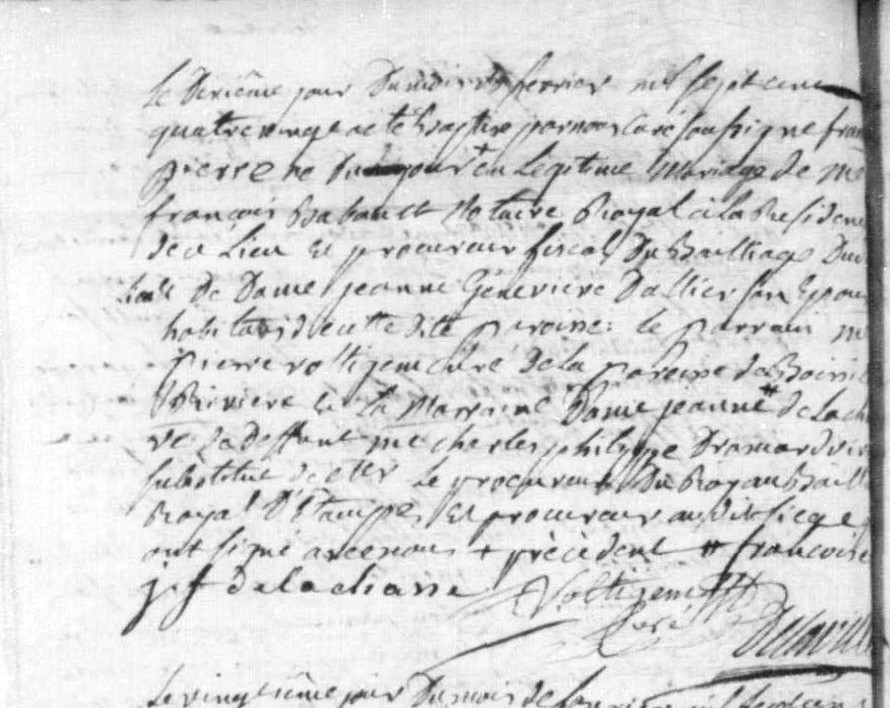 Le dixième jour du mois de fevrier mil sept cent
quatre vingt a été Baptisé par nous curé soussigné fran
pierre né du jour + en Legitime Mariage de me
françois Babault Notaire Royal à la Residen
de ce Lieu et procureur fiscal du Bailliage Du
et de Dame jeanne Genevieve Dallier son Epou
habitans de cette dite paroisse: le parrain m
pierre voltigem curé de la paroisse de Boissi
la Riviere et la Marraine Dame jeanne # de la ch
ve de deffunt me charles philippe Dramard viv
substitut de Mr le procureur du Roy au Baill
Royal d'Etampes et procureur au dit siege
ont signé avec nous + précédent # francoise
j f delachasse Voltigem
Curé Delaville
Le vingtième jour du mois de fevrier mil sept cen